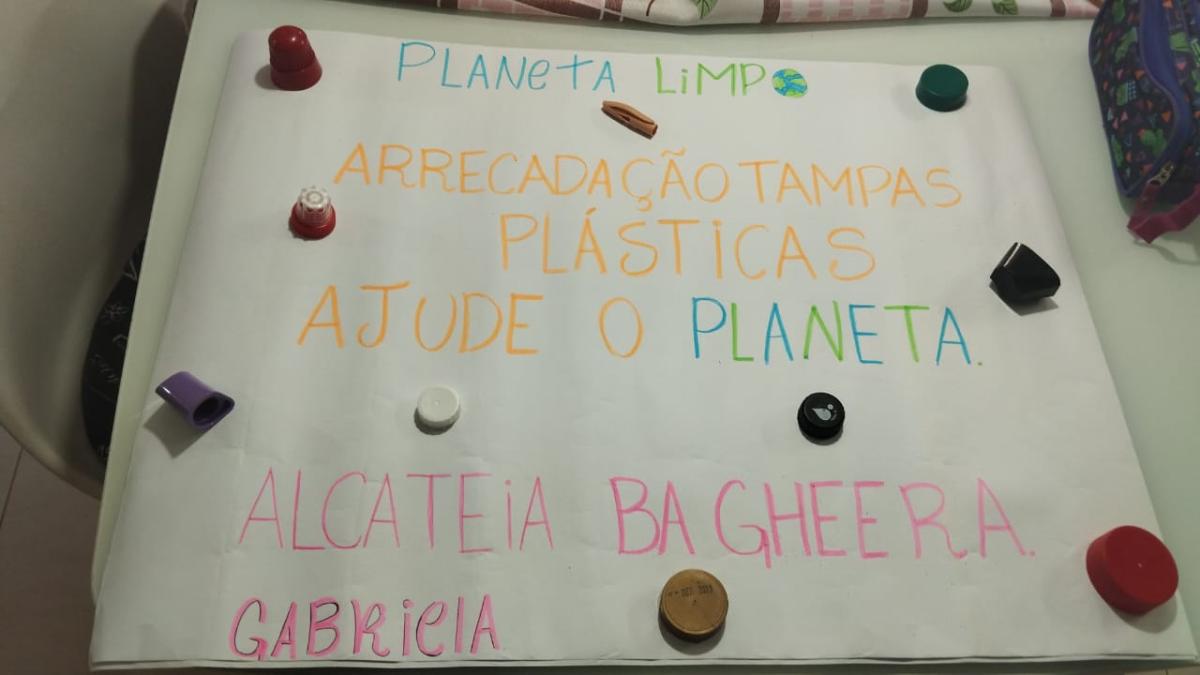 PLANETA LIMPO
ARRECADAÇÃO TAMPAS
PLÁSTICAS
AJUDE O PLANETA.
ALCATEiA BAGHEERA.
GABRiElA